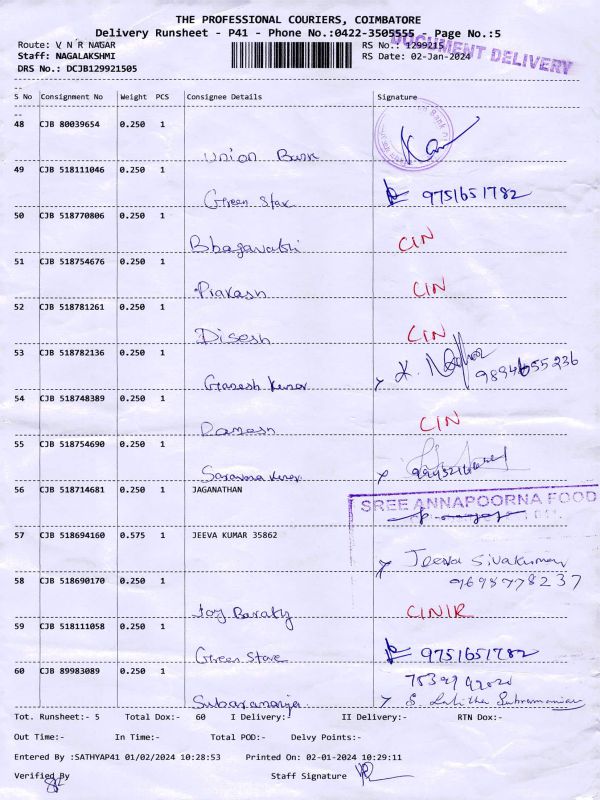 THE PROFESSIONAL COURIERS, COIMBATORE
Delivery Runsheet - P41 - Phone No.:0422-3505555 - Page No.:5
Route: V N R NAGAR RS No.: 1299215
DOCUMENT DELIVERY
Staff: NAGALAKSHMI RS Date: 02-Jan-2024
DRS No.: DCJB129921505
S No Consignment No Weight PCS Consignee Details Signature
48 CJB 80039654 0.250 1
Union Bank
49 CJB 518111046 0.250 1
Green Star 9751651782
50 CJB 518770806 0.250 1
Bhagavathi CIN
51 CJB 518754676 0.250 1
Prakash CIN
52 CJB 518781261 0.250 1
Dinesh CIN
53 CJB 518782136 0.250 1
Ganesh Kumar K. 9894655236
54 CJB 518748389 0.250 1
Ramesh CIN
55 CJB 518754690 0.250 1
Saravana Kumar
56 CJB 518714681 0.250 1 JAGANATHAN
SREE ANNAPOORNA FOOD
57 CJB 518694160 0.575 1 JEEVA KUMAR 35862
Jeeva Sivakumar
9698778237
58 CJB 518690170 0.250 1
Joy CINIR
59 CJB 518111058 0.250 1
Green Store 9751651782
60 CJB 89983089 0.250 1
S. Lalitha Subramanian
Tot. Runsheet:- 5 Total Dox:- 60 I Delivery:- II Delivery:- RTN Dox:-
Out Time:- In Time:- Total POD:- Delvy Points:-
Entered By :SATHYAP41 01/02/2024 10:28:53 Printed On: 02-01-2024 10:29:11
Verified By Staff Signature